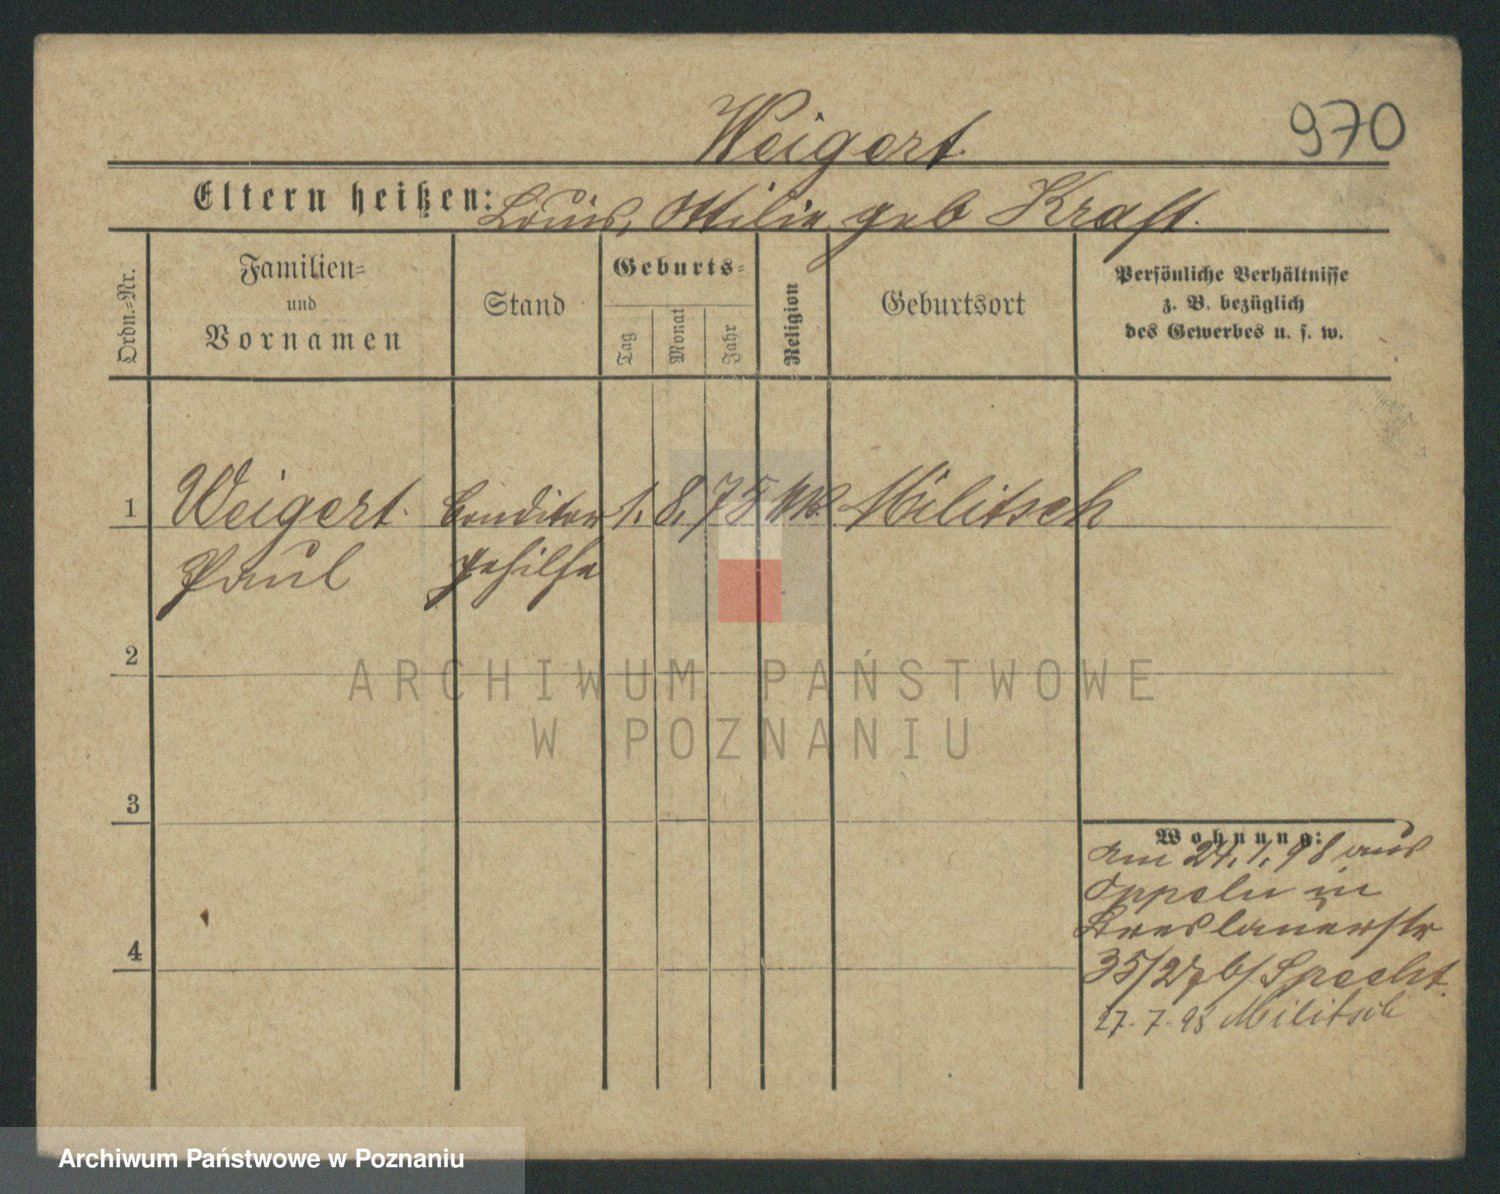 Weigert
970
Eltern heißen: Louis, Ottilie geb Kraft.
Ordn.=Nr.
Familien=
und
Vornamen
Stand
Geburts=
Tag
Monat
Jahr
Religion
Geburtsort
Persönliche Verhältnisse
z. B. bezüglich
des Gewerbes u. s. w.
1 Weigert Conditor 1. 8. 75 Militsch
Paul gehilfe
2
ARCHIWUM PAŃSTWOWE
W POZNANIU
3
Wohnung:
am 24. 1. 98 aus
Oppeln in
Breslauerstr
4
35/27 b/ Specht.
27. 7. 98 Militsch
Archiwum Państwowe w Poznaniu